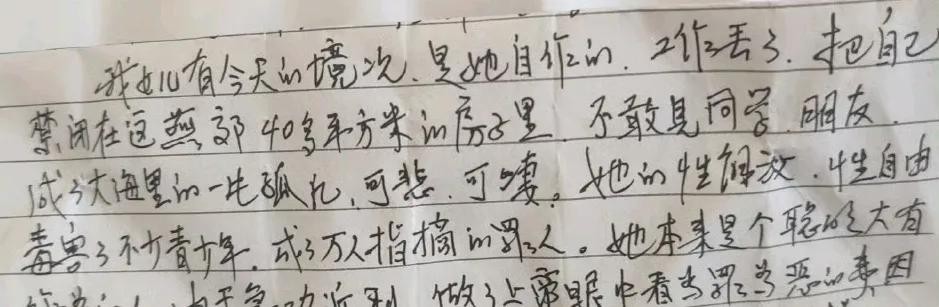 我女儿有今天的境况.是她自作的.工作丢了.把自己
禁闭在这燕郊40多平方米的房子里.不敢见同学.朋友.
成了大海里的一片孤凡.可悲.可凄。她的性解放.性自由
毒害了不少青少年.成了万人指摘的罪人。她本来是个聪明大有
由于急功近利 做了